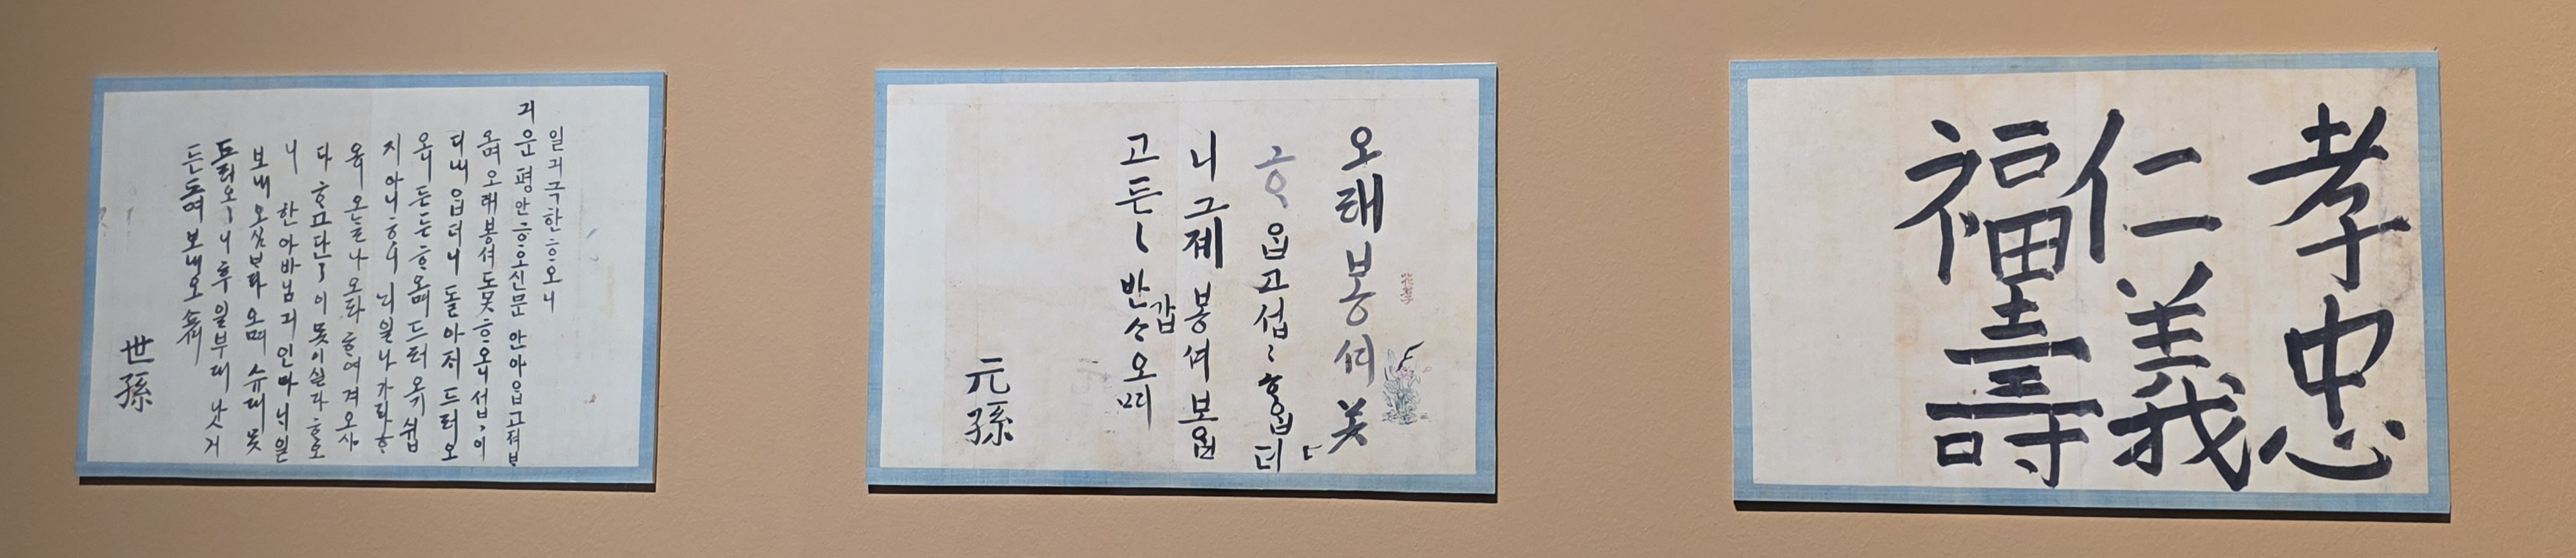 일긔극한ᄒᆞ오니
긔운 평안ᄒᆞ오신 문안 아ᄋᆞᆸ고져 ᄇᆞ
오며 오래 봉셔도 못ᄒᆞ오니 섭섭이
디내ᄋᆞᆸ더니 돌아지 드러오
오니 든든ᄒᆞ오며 드러오기 쉽
지 아니ᄒᆞ니 ᄂᆡ일 나가라 ᄒᆞ
오ᄂᆞᆯ 나오라 ᄒᆞ여 겨오사
다 ᄒᆞ고 단단이 못 이실다 ᄒᆞ오
니 한아바님 긔 인마 ᄂᆡ일
보내오심 ᄇᆞ라오며 슈대 못
들리오니 후일 부대 낫거
든 ᄃᆞ려 보내오쇼셔
世孫
오래 봉셔 못
ᄒᆞᄋᆞᆸ고 섭섭ᄒᆞᄋᆞᆸ더
니 그제 봉셔 보ᄋᆞᆸ
고 든든 반갑ᄉᆞ오ᄃᆡ
元孫
孝忠
仁義
福壽